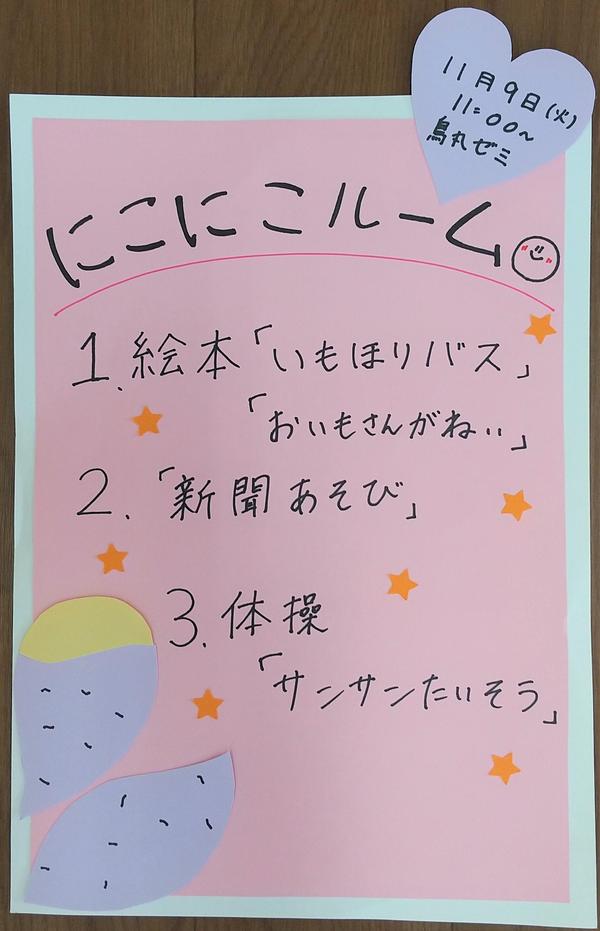 11月9日(火)
11:00~
鳥丸ゼミ
にこにこルーム
1. 絵本「いもほりバス」
「おいもさんがねぃぃ」
2. 「新聞あそび」
3. 体操
「サンサンたいそう」